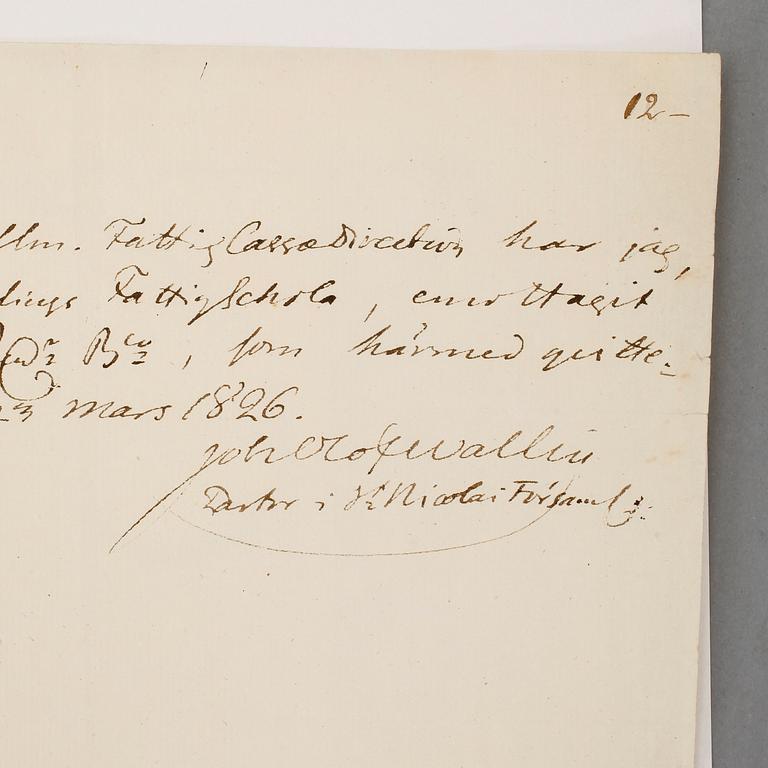 12 –
llm. Fattig Cassæ Direction har jag,
lings FattigSchola, emottagit
B:co, som härmed quitte-
23 Mars 1826.
Joh Olof Wallin
Pastor i St Nicolai Församl: